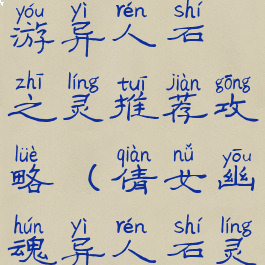 yóu yì rén shí
游异人石
zhī líng tuī jiàn gōng
之灵推荐攻
lüè qiàn nǚ yōu
略（倩女幽
hún yì rén shí líng
魂异人石灵